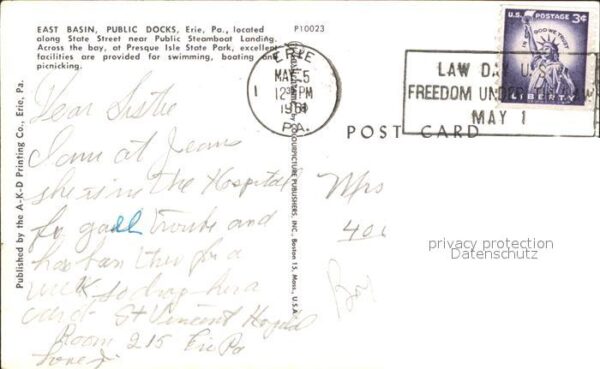 EAST BASIN, PUBLIC DOCKS, Erie, Pa., located
along State Street near Public Steamboat Landing.
Across the bay, at Presque Isle State Park, excellent
facilities are provided for swimming, boating and
picnicking.
P10023
Published by the A-K-D Printing Co., Erie, Pa.
COLOURPICTURE PUBLISHERS, INC., Boston 15, Mass., U.S.A.
ERIE
MAY 5
1 12 PM
1961
PA.
U.S. POSTAGE 3¢
IN GOD WE TRUST
LIBERTY
LAW DAY US
FREEDOM UNDER THE LAW
MAY 1
POST CARD
Dear Sister
I am at Jeans
she is in the Hospital
for gall trouble and
has ban ther for a
week so drop her a
card. St Vincent Hospital
Room 215 Erie Pa
Love
Mrs
400
privacy protection
Datenschutz